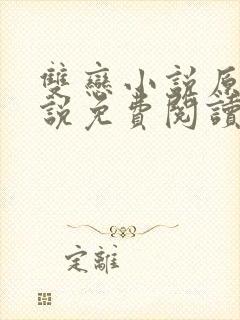 雙戀小說原
說免費閱讀
定離